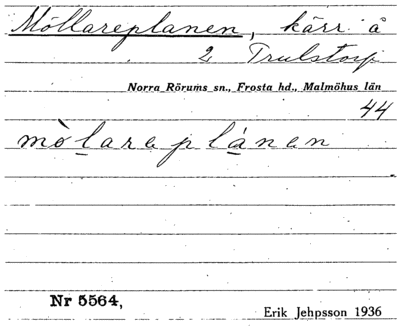 Möllareplanen, kärr å
2 Trulstorp
Norra Rörums sn., Frosta hd., Malmöhus län
44
mòlareplánen
Nr 5564,
Erik Jehpsson 1936